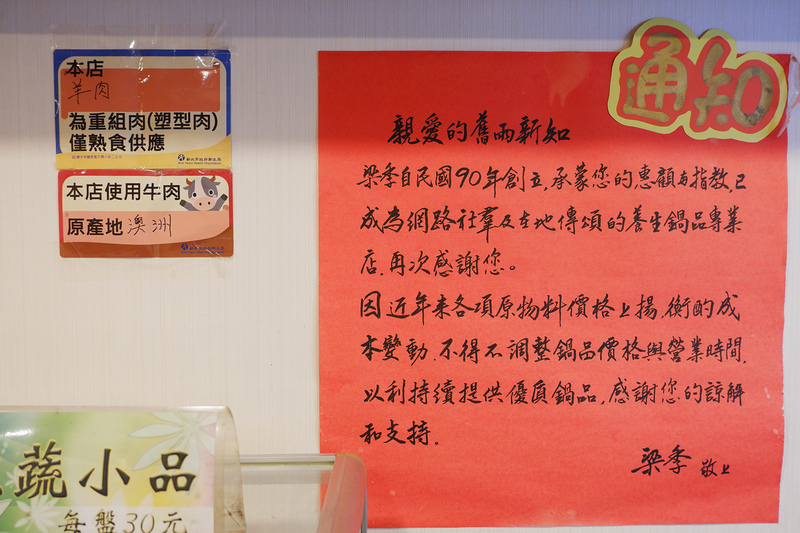 本店
羊肉
為重組肉(塑型肉)
僅熟食供應
本店使用牛肉
原產地 澳洲
通知
親愛的舊雨新知
梁季自民國90年創立,承蒙您的惠顧与指教,已
成為網路社群及在地傳頌的養生鍋品專業
店,再次感謝您。
因近年来各項原物料價格上揚,衡酌成
本變動,不得不調整鍋品價格與營業時間,
以利持續提供優質鍋品,感謝您的諒解
和支持。
梁季 敬上
蔬小品
每盤30元